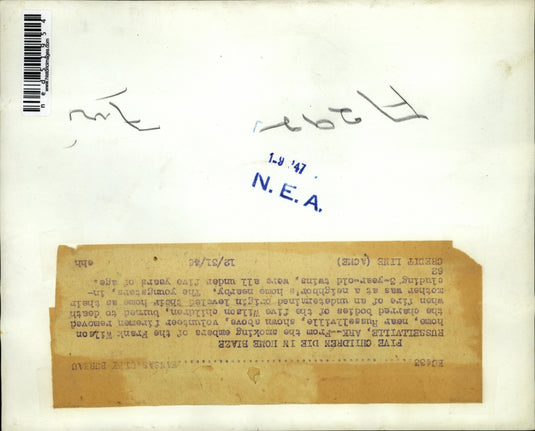 1-9 '47
N.E.A.
KANSAS CITY BUREAU
FIVE CHILDREN DIE IN HOME BLAZE
RUSSELLVILLE, ARK--From the smoking embers of the Frank Wilson
home, near Russellville, shown above, volunteer firemen removed
the charred bodies of the five Wilson children, burned to death
when fire of an undetermined origin leveled their home as their
mother was at a neighbor's home nearby. The youngsters, in-
cluding 3-year-old twins, were all under five years of age.
62
CREDIT LINE (ACME) 12/31/46 ehh